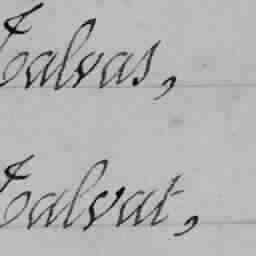 Talvas,
Talvat,